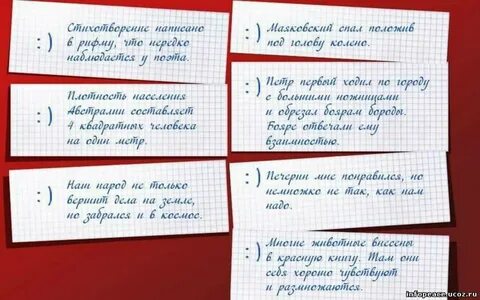 :) Стихотворение написано
в рифму, что нередко
наблюдается у поэта.
:) Плотность населения
Австралии составляет
4 квадратных человека
на один метр.
:) Наш народ не только
вершит дела на земле,
но забрался и в космос.
:) Маяковский спал положив
под голову колено.
:) Петр первый ходил по городу
с большими ножницами
и обрезал боярам бороды.
Бояре отвечали ему
взаимностью.
:) Печорин мне понравился, но
немножко не так, как нам
надо.
:) Многие животные внесены
в красную книгу. Там они
себя хорошо чувствуют
и размножаются.
infopeace.ucoz.ru